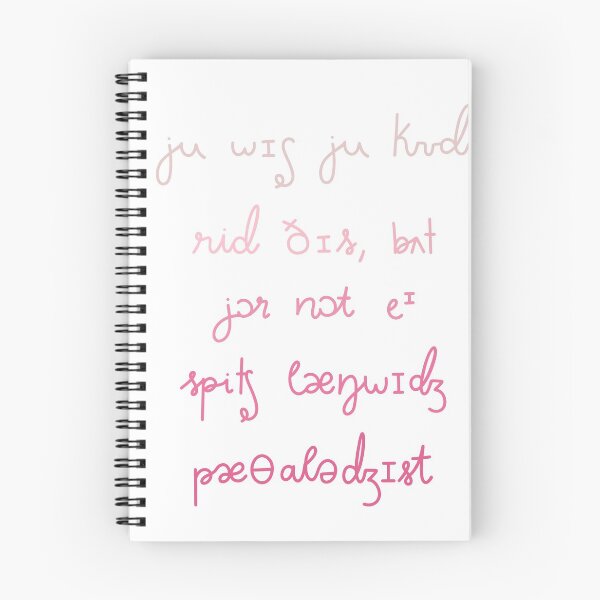 ju wɪʃ ju kʊd
rid ðɪs, bʌt
jɔr nɔt eᶦ
spitʃ læŋwɪdʒ
pæθalədʒɪst